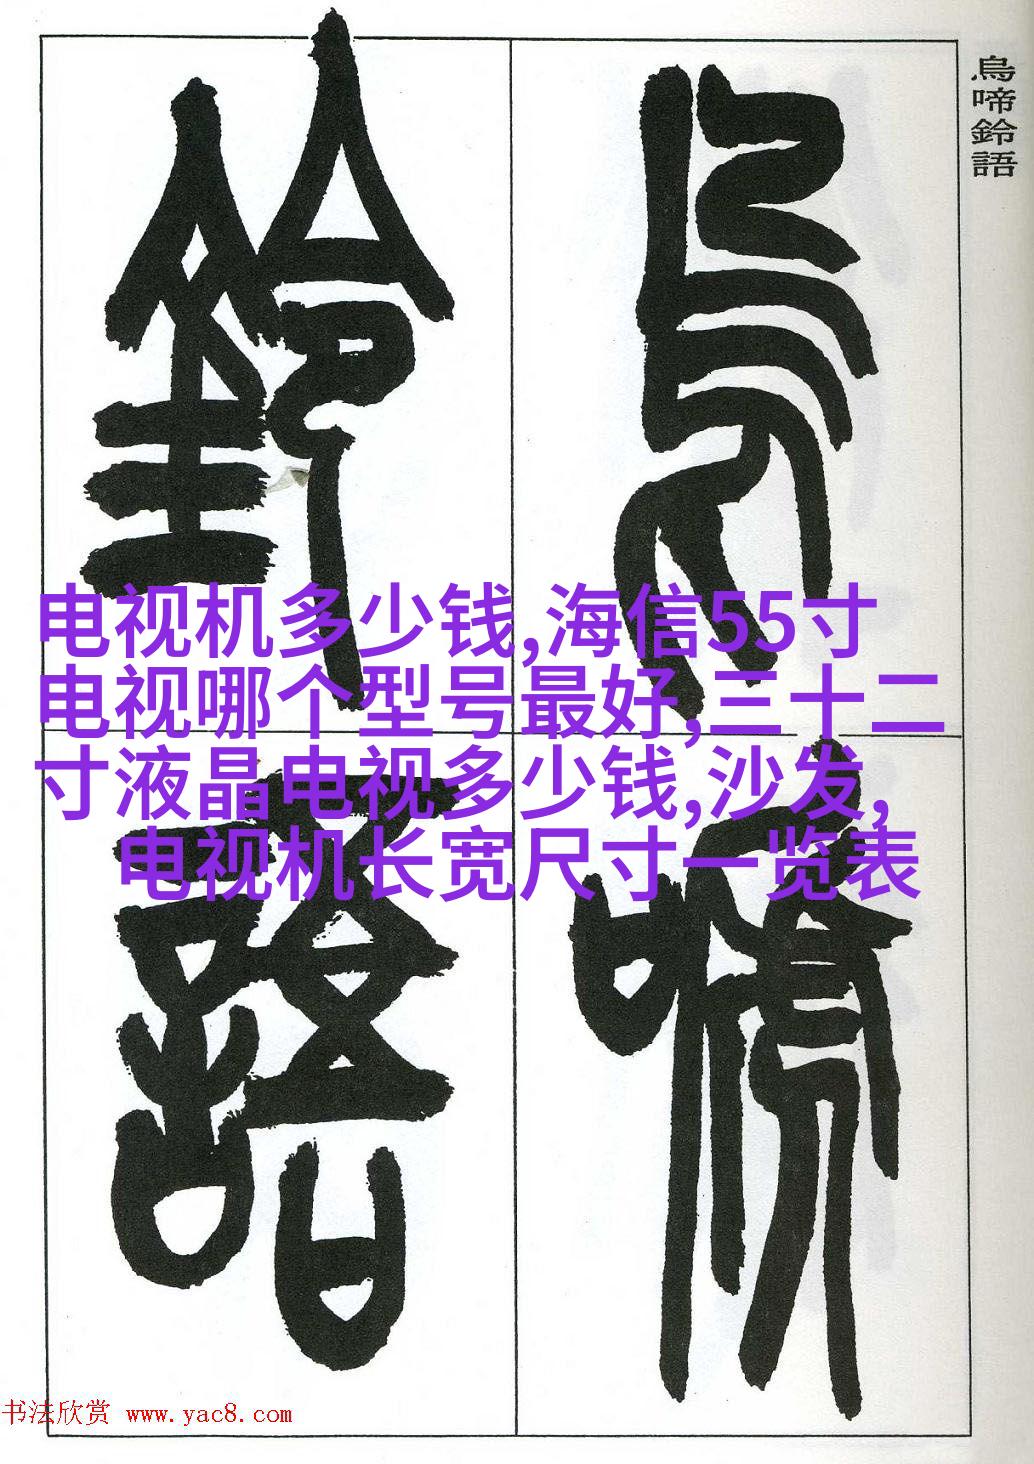 烏啼鈴語
烏啼
鈴語
电视机多少钱,海信55寸
电视哪个型号最好,三十二
寸液晶电视多少钱,沙发,
电视机长宽尺寸一览表
书法欣赏 www.yac8.com